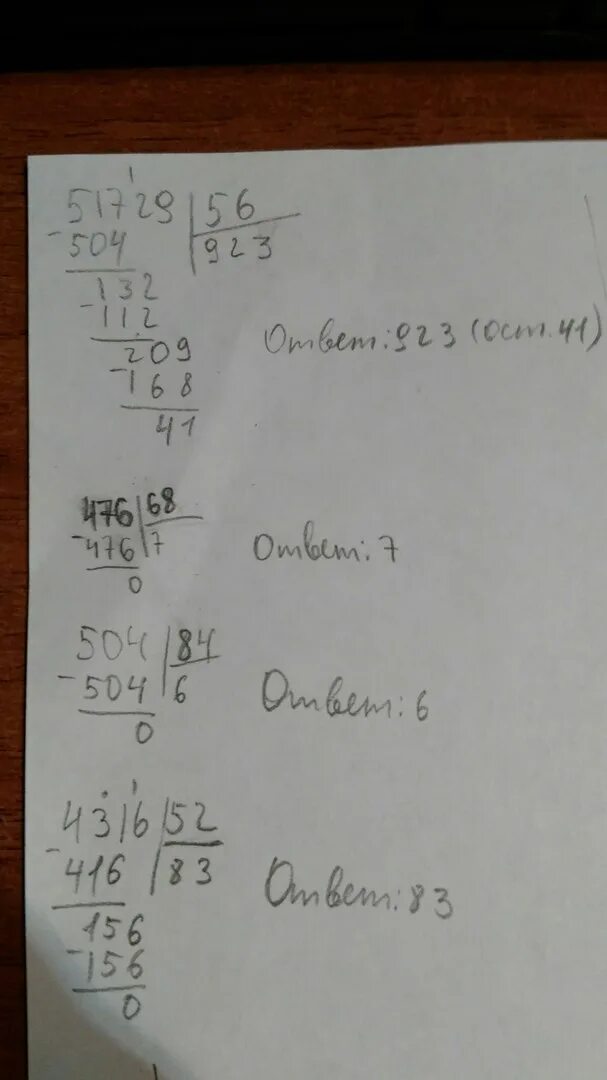 51729 | 56
-504 | 923
132
-112
209
-168
41
Ответ: 923 (ост. 41)
476 | 68
-476 | 7
0
Ответ: 7
504 | 84
-504 | 6
0
Ответ: 6
4316 | 52
-416 | 83
156
-156
0
Ответ: 83